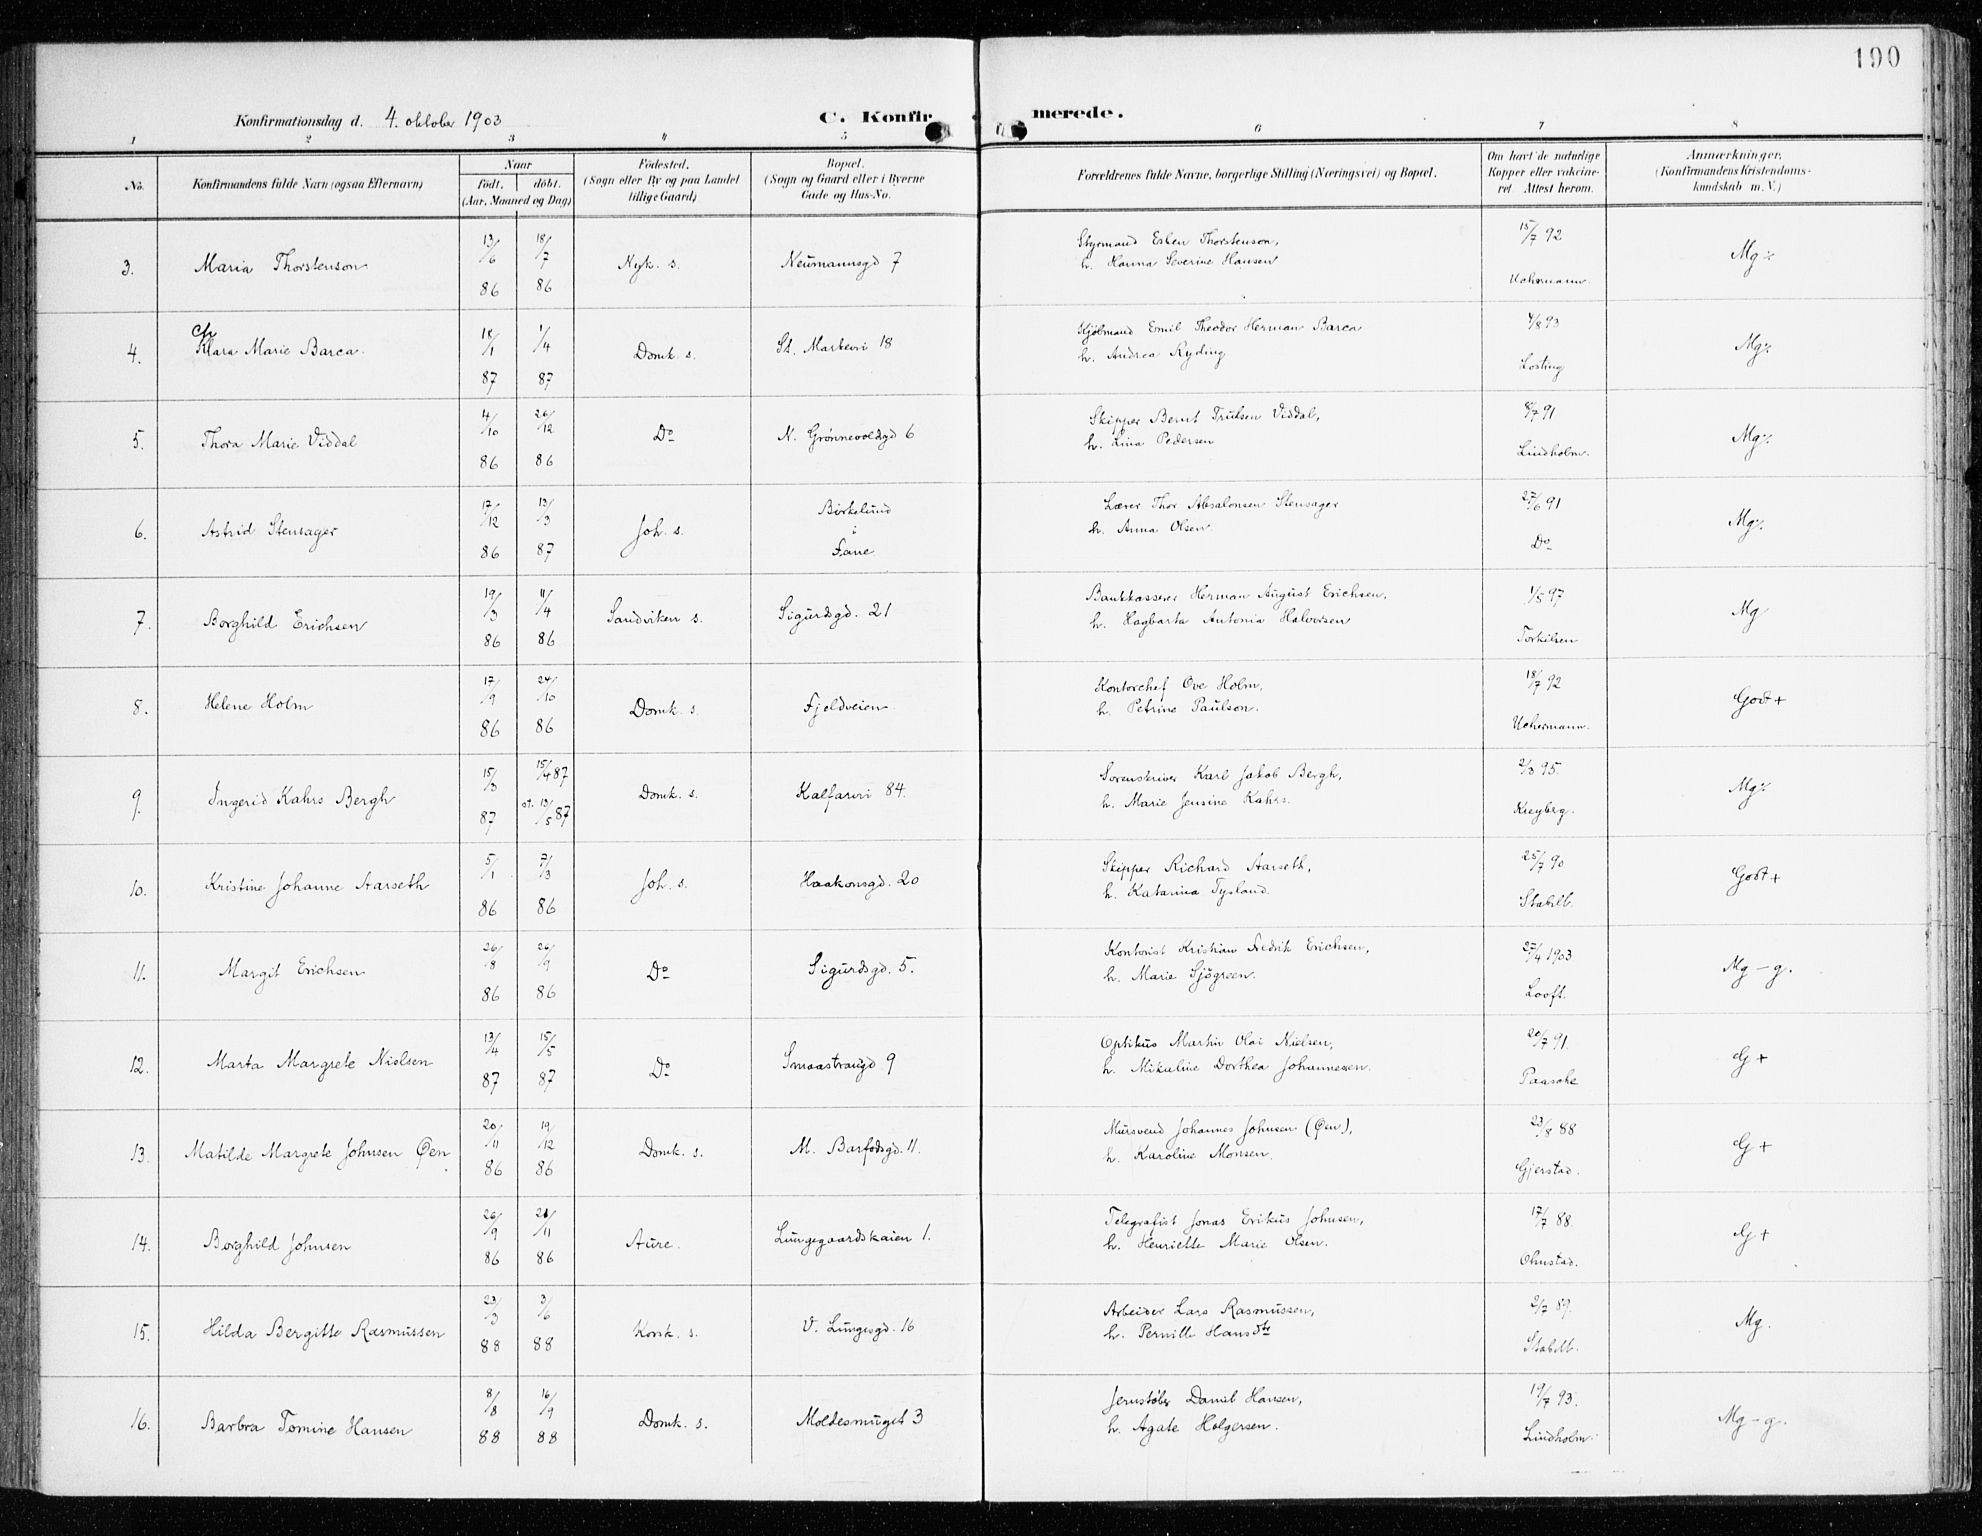 190
Konfirmationsdag d. 4. oktober 1903
C. Konfirmerede.
1 2 3 4 5 6 7 8
No. | Konfirmandens fulde Navn (ogsaa Efternavn) | Naar født. døbt. (Aar, Maaned og Dag) | Fødested. (Sogn eller By og paa Landet tillige Gaard) | Bopæl. (Sogn og Gaard eller i Byerne Gade og Hus-No. | Forældrenes fulde Navne, borgerlige Stilling (Næringsvei) og Bopæl. | Om havt de naturlige Kopper eller vakcineret. Attest herom. | Anmærkninger. (Konfirmandens Kristendomskundskab m. V.)
3. | Maria Thorstenson | 13/6 86 | 18/7 86 | Nyk. s. | Neumannsgd 7 | Styrmand Esben Thorstenson, h. Hanna Severine Hansen | 15/7 92 Uchermann. | Mg÷
4. | Clara Marie Barca. | 18/1 87 | 1/4 87 | Domk. s. | St. Markevei 18 | Kjølmand Emil Theodor Herman Barca h. Andrea Ryding | 4/8 93 Losting | Mg÷
5. | Thora Marie Viddal | 4/10 86 | 26/12 86 | Do | N. Grønnevoldsgd 6 | Skipper Bernt Trulsen Viddal, h. Lina Pedersen | 8/7 91 Lindholm. | Mg÷
6. | Astrid Stensager | 17/12 86 | 13/3 87 | Joh. s. | Birkelund i Fane | Lærer Thor Absalonsen Stensager h. Anna Olsen. | 27/6 91 Do | Mg÷
7. | Borghild Erichsen | 19/3 86 | 11/4 86 | Sandviken s. | Sigurdsgd. 21 | Bankkasserer Herman August Erichsen, h. Hagbarta Antonia Halvorsen | 1/5 97 Torkilsen | Mg
8. | Helene Holm | 17/9 86 | 24/10 86 | Domk. s. | Fjeldveien | Kontorchef Ove Holm, h. Petrine Paulson. | 18/7 92 Uchermann. | Godt+
9. | Ingerid Kahrs Bergh | 15/3 87 | 15/4 87 st. 13/5 87 | Domk. s. | Kalfarvei 84. | Sorenskriver Karl Jakob Bergh, h. Marie Jensine Kahrs. | 2/3 95. Kieyberg. | Mg÷
10. | Kristine Johanne Aarseth | 5/1 86 | 7/3 86 | Joh. s. | Haakonsgd. 20 | Skipper Richard Aarseth, h. Katarina Tysland. | 25/7 90 Stabell. | Godt+
11. | Margit Erichsen | 26/8 86 | 26/9 86 | Do | Sigurdsgd. 5. | Kontorist Kristian Fredrik Erichsen, h. Marie Sjøgreen. | 27/4 1903 Looft. | Mg – g.
12. | Marta Margrete Nielsen | 13/4 87 | 15/5 87 | Do | Smaastrandgd 9 | Optikus Martin Olai Nielsen, h. Mikaline Dorthea Johannesen. | 20/7 91. Paasche | G +
13. | Matilde Margrete Johnsen Øen | 20/11 86 | 19/12 86 | Domk. s. | M. Barfodsgd. 11. | Mursvend Johannes Johnsen (Øen), h. Karoline Monsen. | 23/8 88 Gjerstad. | G +
14. | Borghild Johnsen | 26/9 86 | 21/11 86 | Aure. | Lungegaardskaien 1. | Telegrafist Jonas Erikus Johnsen, h. Henriette Marie Olsen. | 17/7 88. Ohnstad. | G +
15. | Hilda Bergitte Rasmussen | 23/3 88 | 3/6 88 | Korsk. s. | V. Lungesgd. 16 | Arbeider Lars Rasmussen, h. Pernille Hansdtr | 2/7 89. Stabell. | Mg.
16. | Barbra Tomine Hansen | 8/8 88 | 16/9 88 | Domk. s. | Moldesmuget 3 | Jernstøber Daniel Hansen, h. Agate Holgersen. | 19/7 93. Lindholm. | Mg – g.